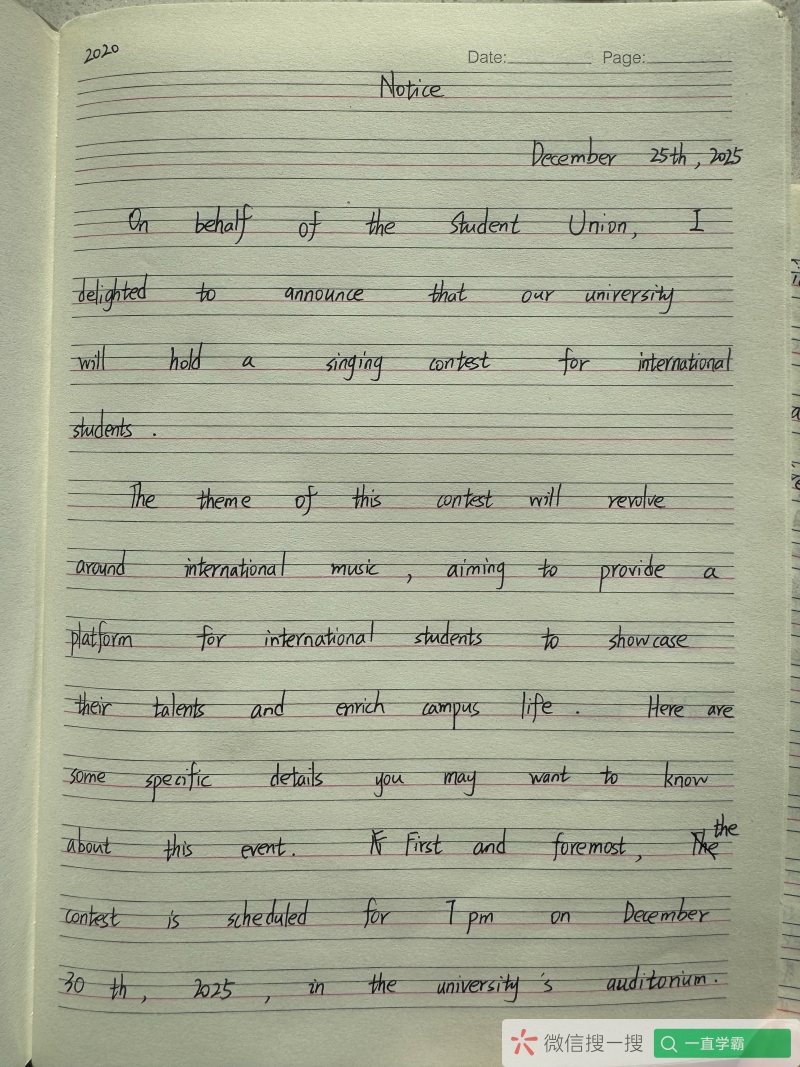 2020
Date: Page:
Notice
December 25th, 2025
On behalf of the Student Union, I
delighted to announce that our university
will hold a singing contest for international
students.
The theme of this contest will revolve
around international music, aiming to provide a
platform for international students to showcase
their talents and enrich campus life. Here are
some specific details you may want to know
about this event. First and foremost, the
contest is scheduled for 7 pm on December
30th, 2025, in the university's auditorium.
微信搜一搜 一直学霸